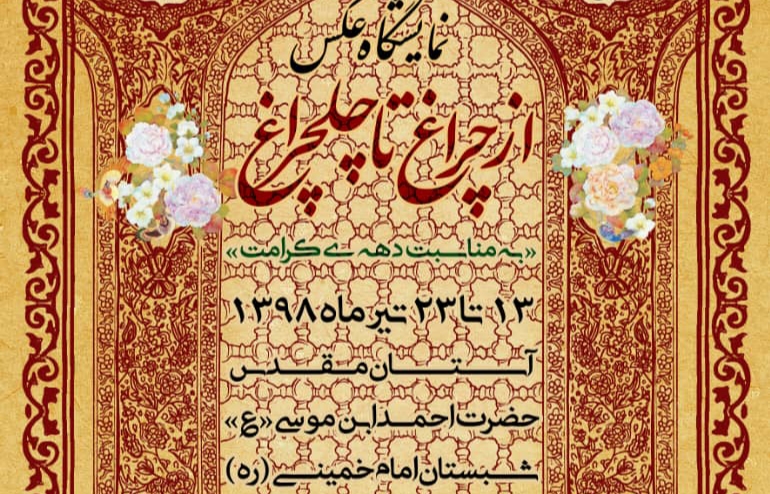 نمایشگاه عکس
از چراغ تا چلچراغ
«به مناسبت دهه ی کرامت»
۱۳ تا ۲۳ تیر ماه ۱۳۹۸
آستان مقدس
حضرت احمد ابن موسی «ع»
شبستان امام خمینی (ره)